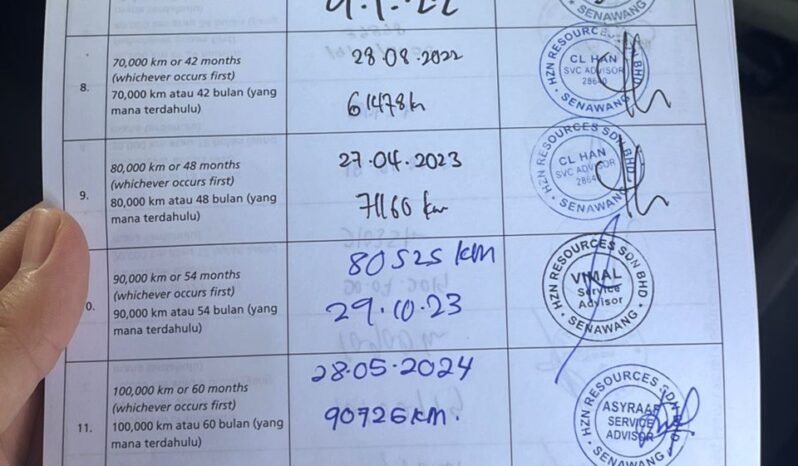 8.
70,000 km or 42 months
(whichever occurs first)
70,000 km atau 42 bulan (yang
mana terdahulu)
28.08.2022
61478km
HZN RESOURCES SDN BHD
CL HAN
SVC ADVISOR
SENAWANG
9.
80,000 km or 48 months
(whichever occurs first)
80,000 km atau 48 bulan (yang
mana terdahulu)
27.04.2023
71160 km
HZN RESOURCES SDN BHD
CL HAN
SVC ADVISOR
SENAWANG
0.
90,000 km or 54 months
(whichever occurs first)
90,000 km atau 54 bulan (yang
mana terdahulu)
80525 KM
29.10.23
HZN RESOURCES SDN BHD
VIMAL
Service
Advisor
SENAWANG
11.
100,000 km or 60 months
(whichever occurs first)
100,000 km atau 60 bulan (yang
mana terdahulu)
28.05.2024
90726KM.
HZN RESOURCES SDN BHD
ASYRAAF
SERVICE
ADVISOR
SENAWANG